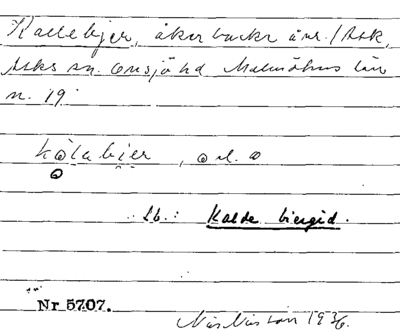 Kallebjer, åker backe å nr. 1 Ask,
Asks sn. Onsjö hd Malmöhus län
n. 19
kålabjer, o ul. o
Lb.: Kalde biergid.
Nr 5707.
1936.